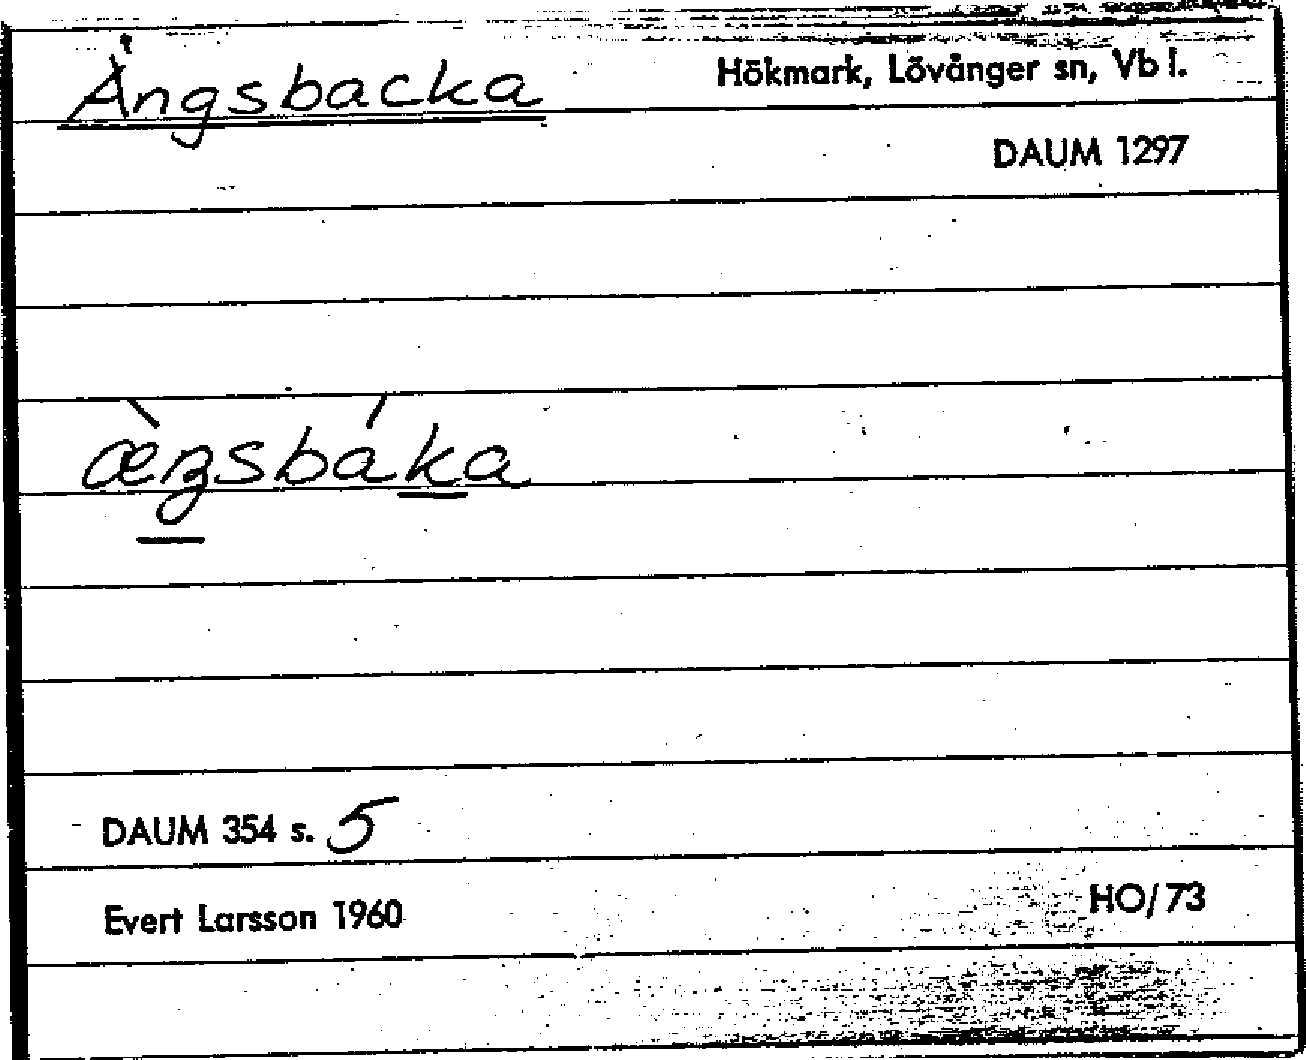 Ängsbacka
Hökmark, Lövånger sn, Vb l.
DAUM 1297
æ̀ŋsbáka
DAUM 354 s. 5
Evert Larsson 1960
HO/73